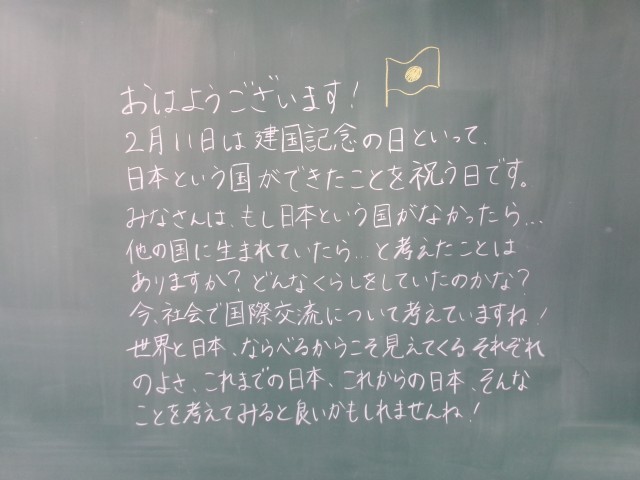 おはようございます!
2月11日は建国記念の日といって、
日本という国ができたことを祝う日です。
みなさんは、もし日本という国がなかったら…
他の国に生まれていたら…と考えたことは
ありますか?どんなくらしをしていたのかな?
今、社会で国際交流について考えていますね!
世界と日本、ならべるからこそ見えてくるそれぞれ
のよさ、これまでの日本、これからの日本、そんな
ことを考えてみると良いかもしれませんね!